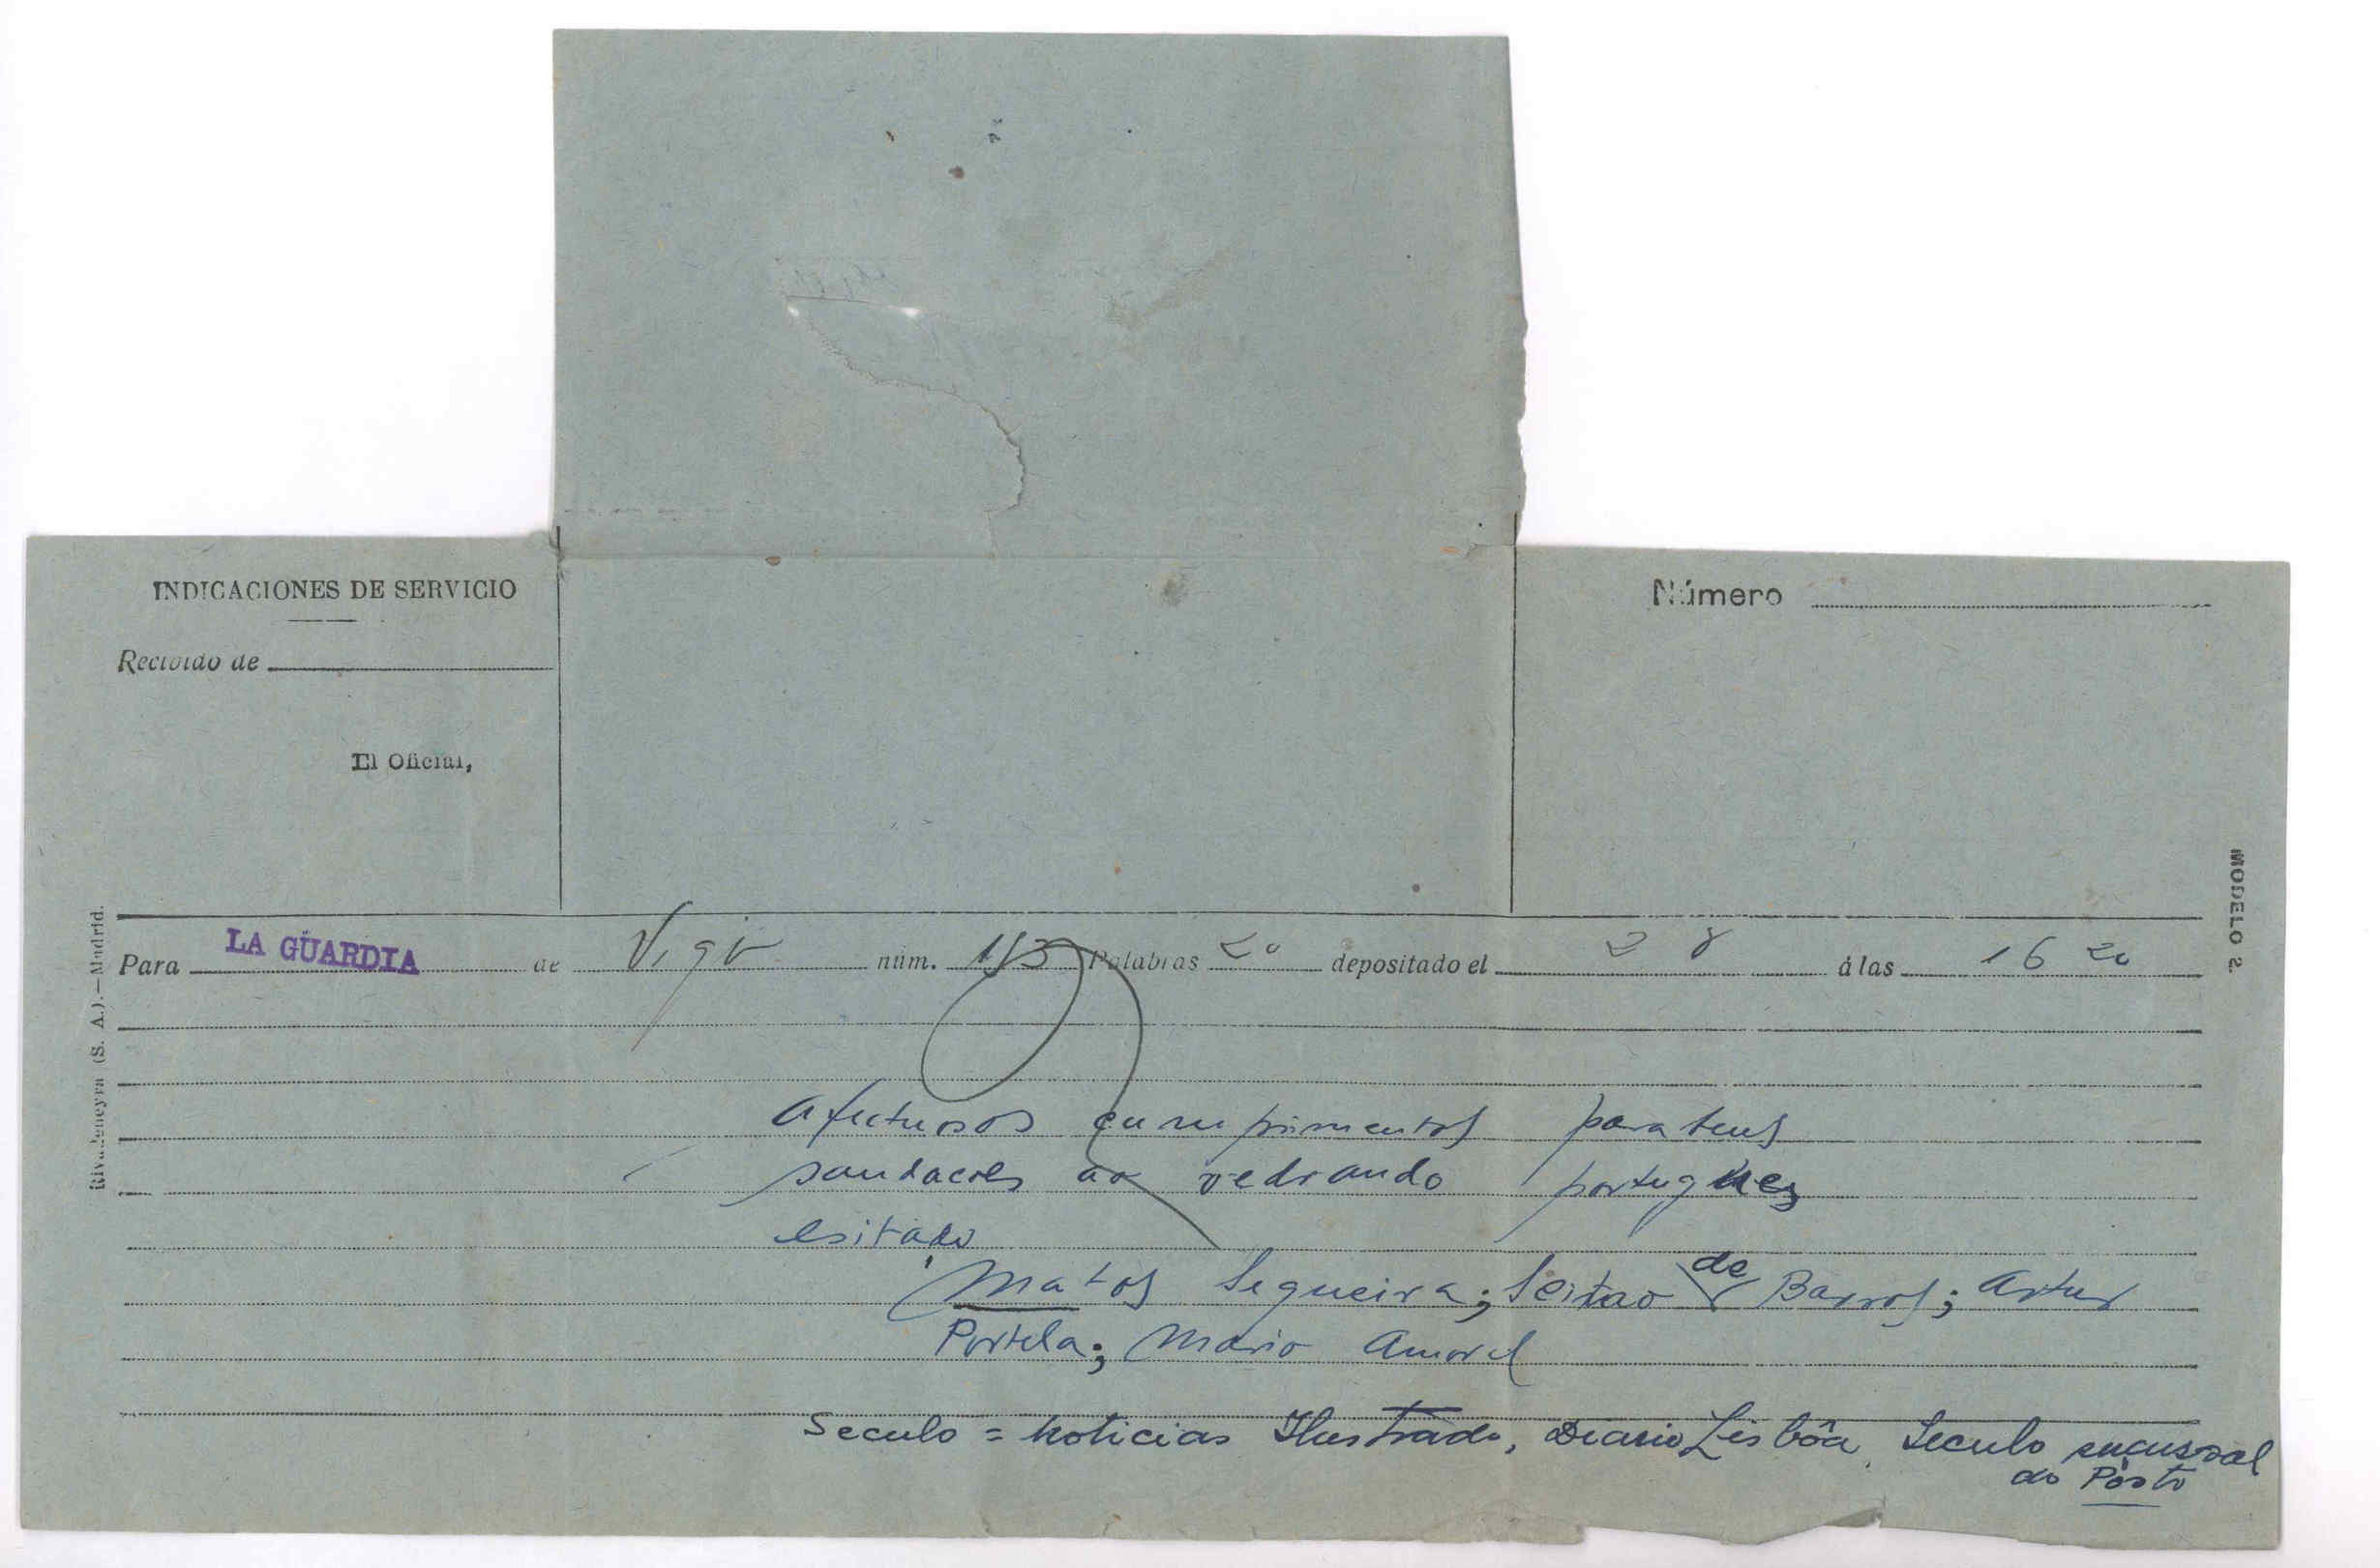 INDICACIONES DE SERVICIO
Recibido de
El Oficial,
Número
MODELO 2
Rivadeneyra (S. A.).—Madrid.
Para LA GUARDIA de Vigo núm. Palabras 20 depositado el 28 á las 16 20
Afectuosos cumprimentos parateus
saudacoes ao vedrando portugues
esitado
Matos Sequeira; Leitao de Barros; Artur
Portela; Mario Amorel
Seculo = Noticias Ilustrado, Diario Lisbôa, Seculo sucursal
do Pôsto